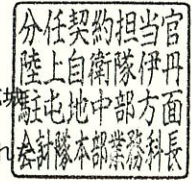 分任契約担当官
陸上自衛隊伊丹
駐屯地中部方面
会計隊本部業務科長
れ